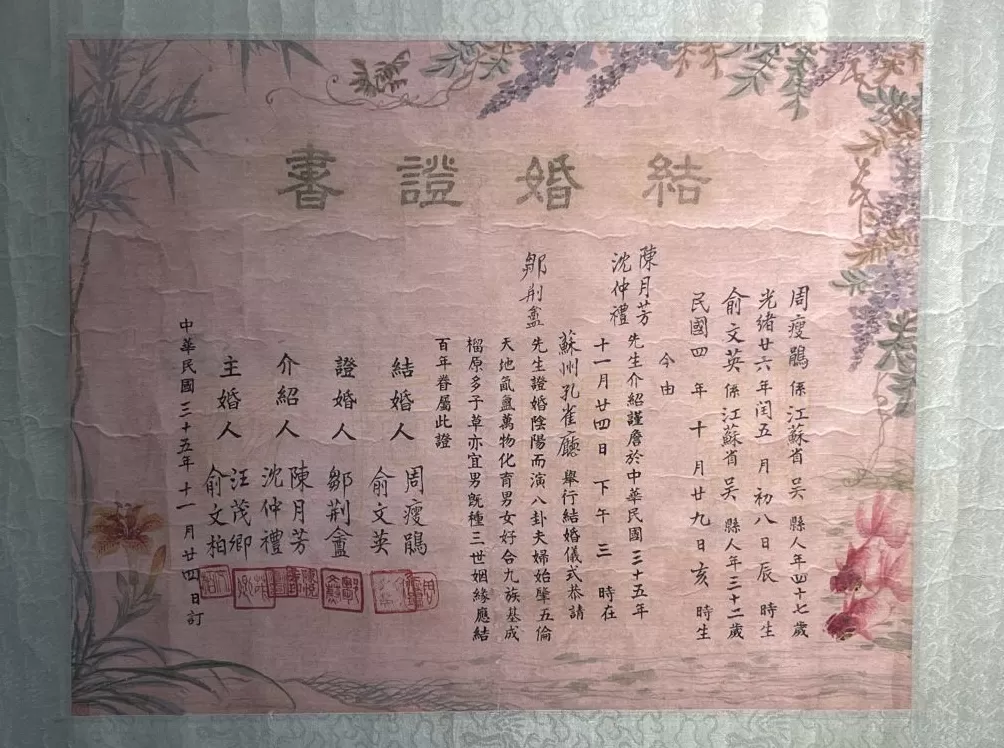 結婚證書
周瘦鵑係江蘇省吳縣人年四十七歲
光緒廿六年閏五月初八日辰時生
俞文英係江蘇省吳縣人年三十二歲
民國四年十月廿九日亥時生
今由
陳月芳
沈仲禮
先生介紹謹詹於中華民國三十五年
十一月廿四日下午三時在
蘇州孔雀廳舉行結婚儀式恭請
鄒荆盫先生證婚陰陽而演八卦夫婦始肇五倫
天地氤氳萬物化育男女好合九族基成
榴原多子草亦宜男既種三世姻緣應結
百年眷屬此證
結婚人 周瘦鵑 俞文英
證婚人 鄒荆盫
介紹人 陳月芳 沈仲禮
主婚人 汪茂卿 俞文柏
中華民國三十五年十一月廿四日訂